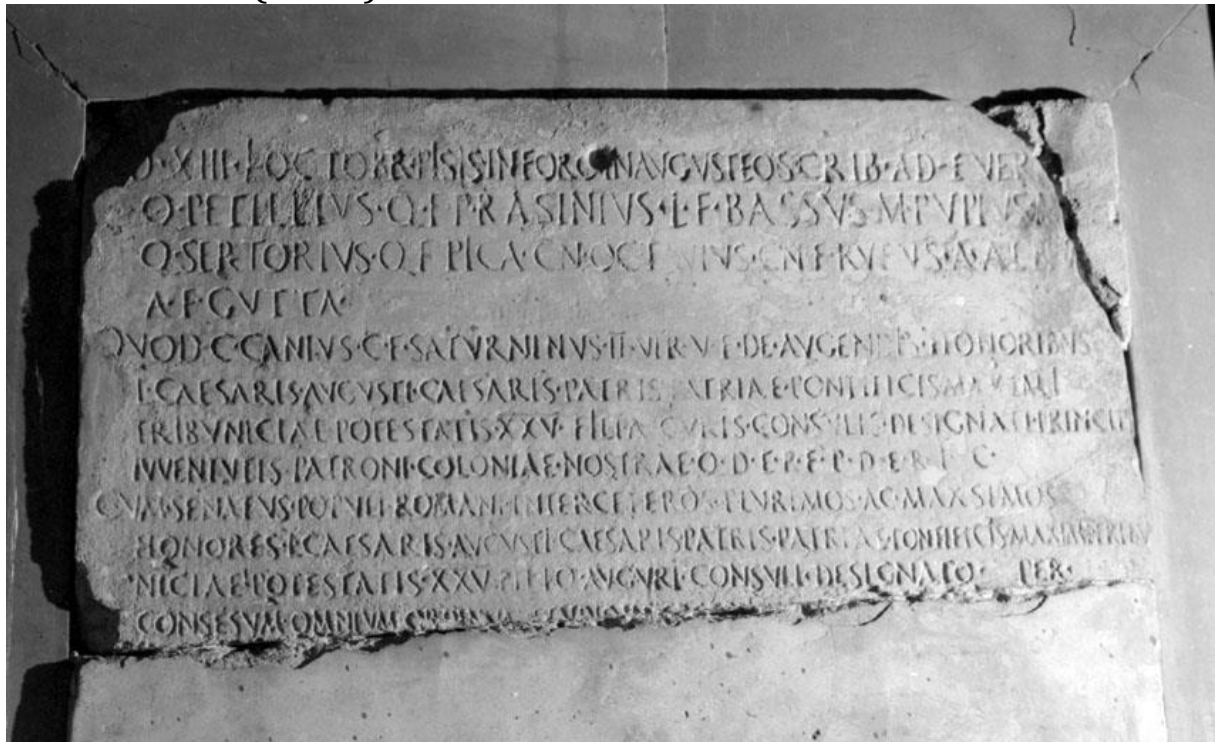 D·XIII·K·OCTOBR·PISIS·IN·FORO·IN·AUGUSTEO·SCRIB·ADFUER
Q·PETILLIVS·Q·F·P·RASINIVS·L·F·BASSVS·M·PVPIVS
Q·SERTORIVS·Q·F·PICA·CN·OCTAVIVS·CN·F·RVFVS·A·AL
A·F·GVTTA·
QVOD·C·CANIVS·C·F·SATVRNINVS·II·VIR·V·F·DE·AVGENDIS·HONORIBVS
L·CAESARIS·AVGVSTI·CAESARIS·PATRIS·PATRIAE·PONTIFICIS·MAXIMI
TRIBVNICIAE·POTESTATIS·XXV·FILI·AVGVRIS·CONSVLIS·DESIGNATI·PRINCIPI
IVVENTVTIS·PATRONI·COLONIAE·NOSTRAE·Q·D·E·R·F·P·D·E·R·I·C·
CVM·SENATVS·POPVLI·ROMANI·INTER·CETEROS·PLVRIMOS·AC·MAXSIMOS
HONORES·L·CAESARI·AVGVSTI·CAESARIS·PATRIS·PATRIAE·PONTIFICIS·MAXIMI·TRIBV
NICIAE·POTESTATIS·XXV·FILIO·AVGVRI·CONSVLI·DESIGNATO·PER·
CONSESVM·OMNIVM